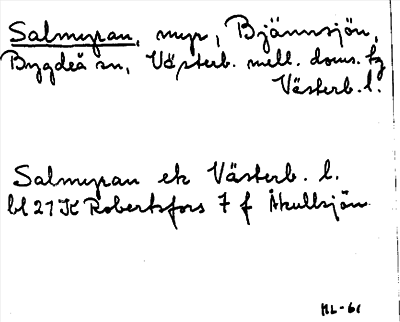 Salmyran, myr, Bjännsjön,
Bygdeå sn, Västerb. mell. doms. hg
Västerb. l.
Salmyran ek Västerb. l.
bl 21 K Robertsfors 7 f Åkullsjön
ML-61